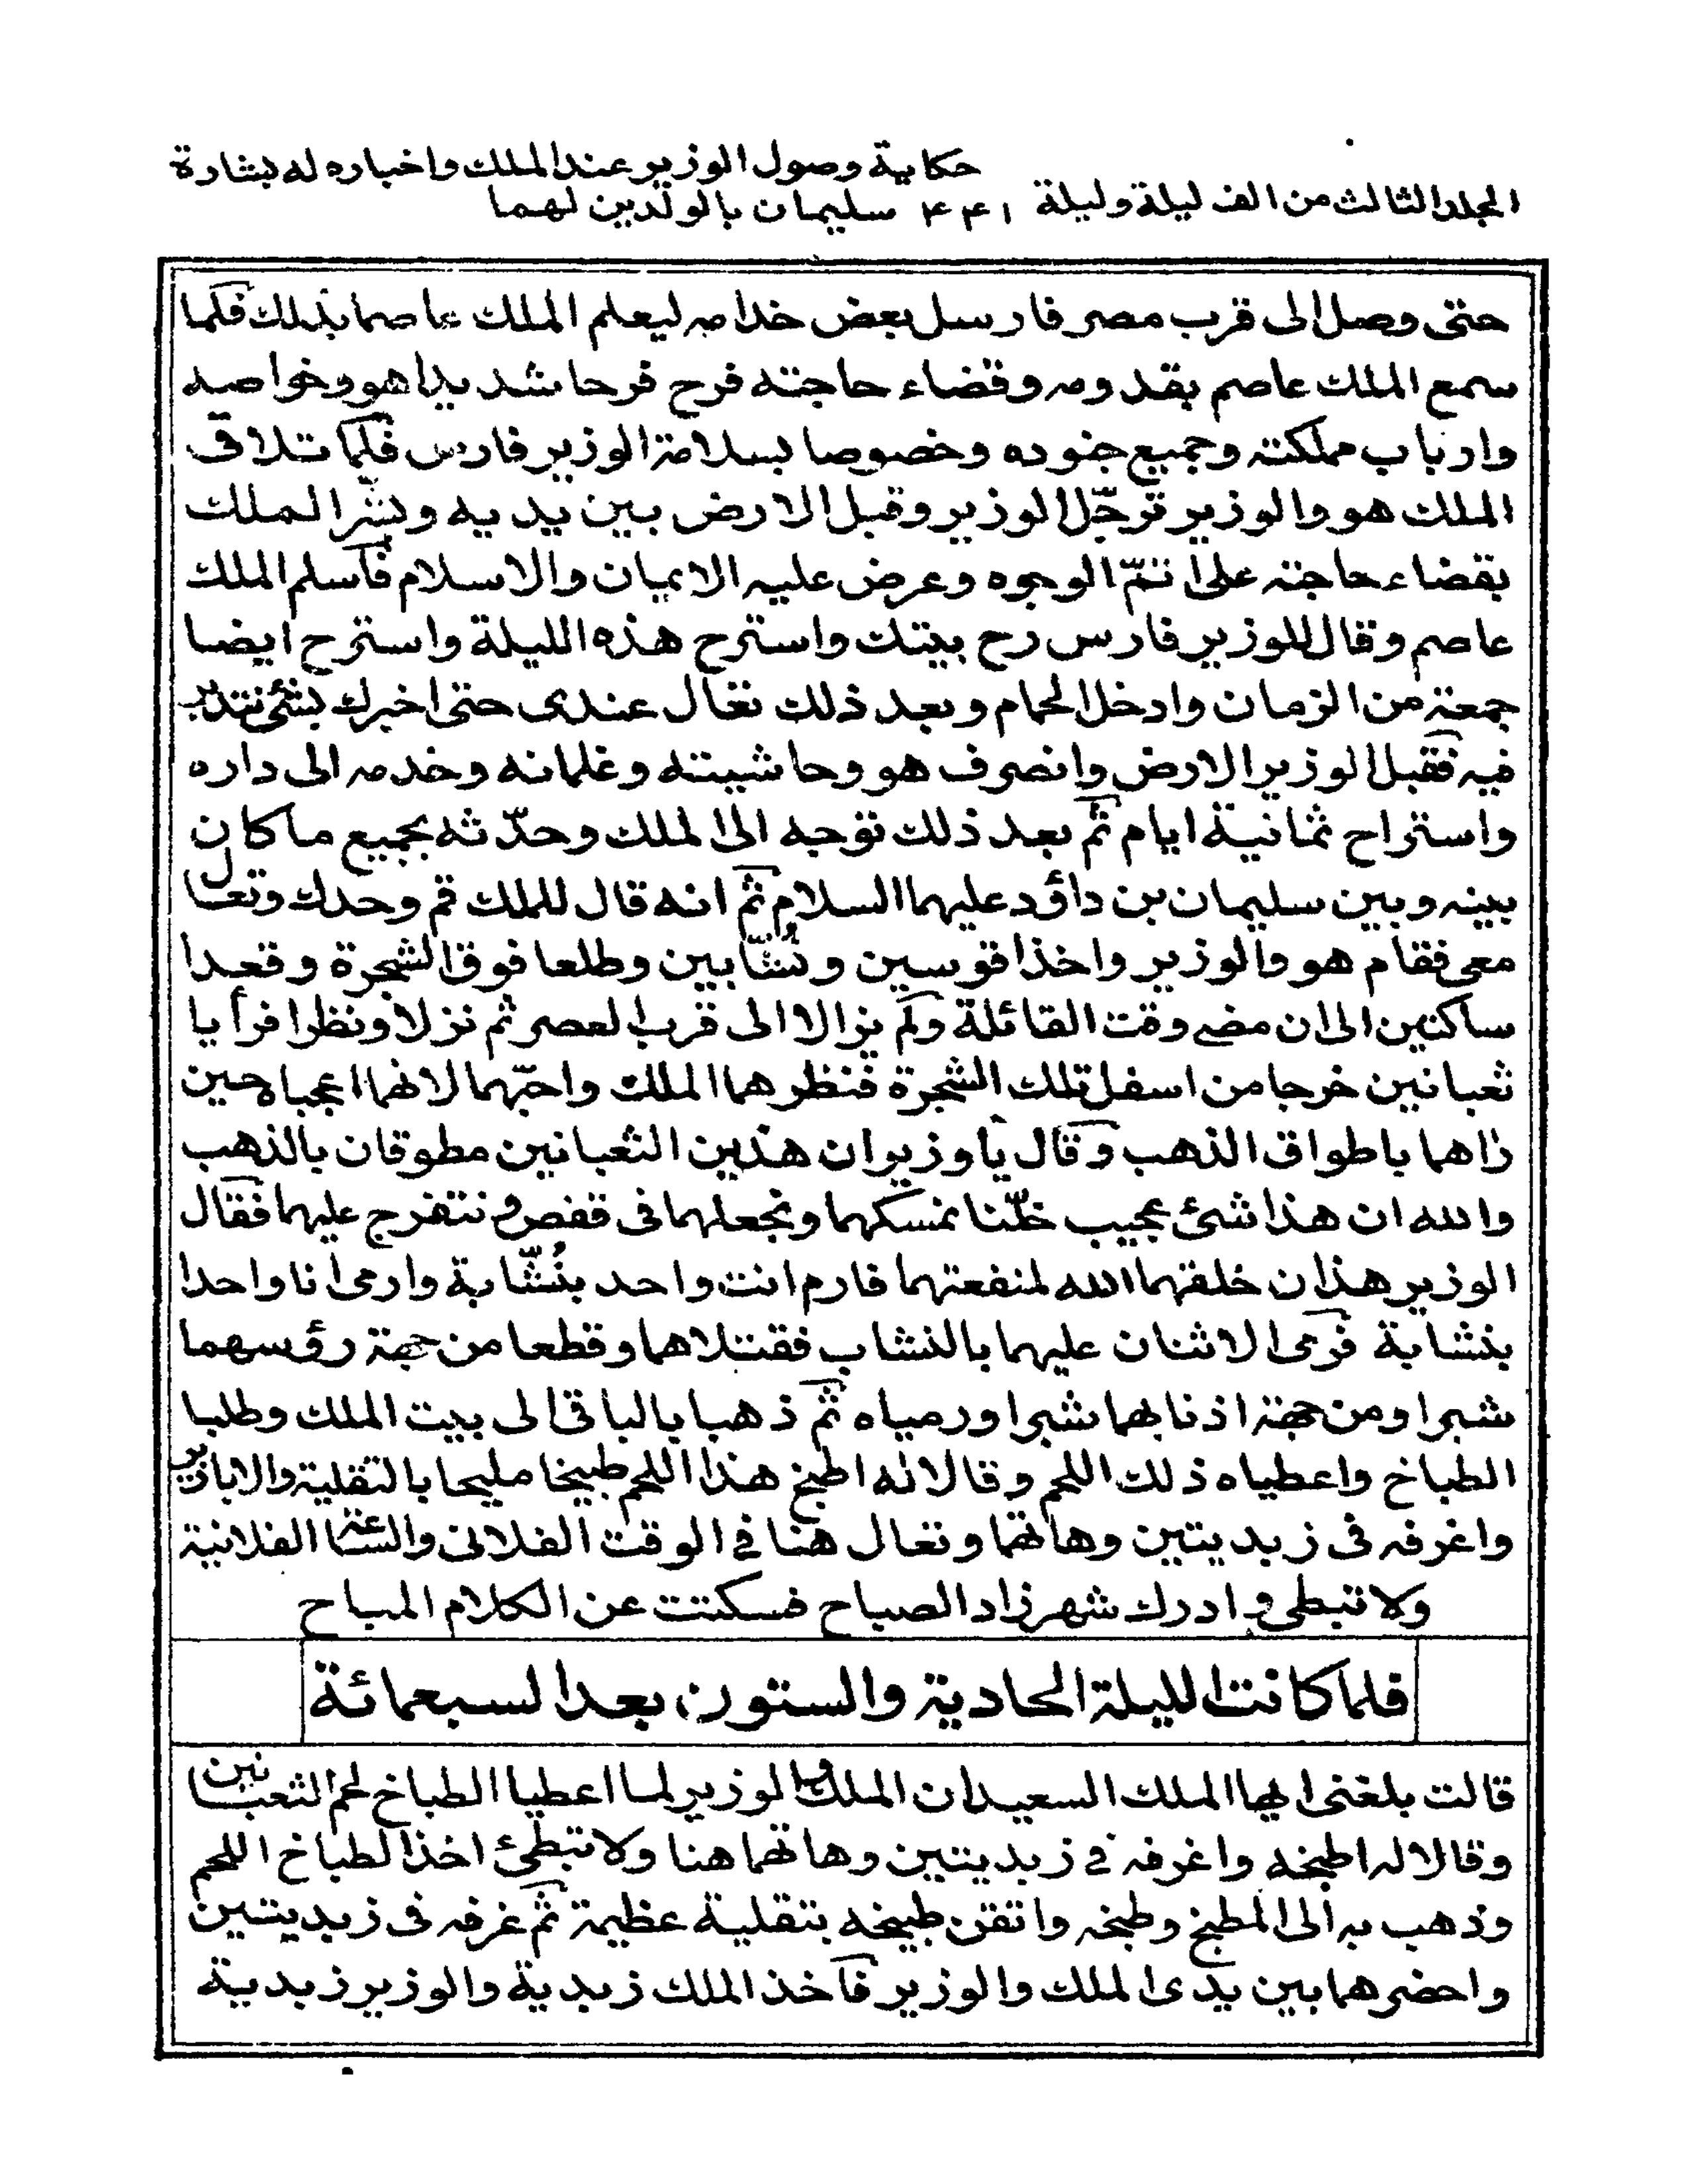 حكاية وصول الوزير عند الملك واخباره له بشارة
المجلد الثالث من الف ليلة وليلة ۴۴۱ سليمان بالولدين لهما
حتى وصل الى قرب مصر فارسل بعض خدامه ليعلم الملك عاصما بذلك فلما
سمع الملك عاصم بقدومه وقضاء حاجته فرح فرحا شديدا هو وخواصه
وارباب مملكته وجميع جنوده وخصوصا بسلامة الوزير فارس فلما تلاقى
الملك هو والوزير ترجّل الوزير وقبل الارض بين يديه وبشّر الملك
بقضاء حاجته على اتمّ الوجوه وعرض عليه الايمان والاسلام فاسلم الملك
عاصم وقال للوزير فارس رح بيتك واسترح هذه الليلة واسترح ايضا
جمعة من الزمان وادخل الحمام وبعد ذلك تعال عندى حتى اخبرك بشئ نتدبر
فيه فقبل الوزير الارض وانصرف هو وحاشيته وغلمانه وخدمه الى داره
واستراح ثمانية ايام ثم بعد ذلك توجه الى الملك وحدّثه بجميع ما كان
بينه وبين سليمان بن داؤد عليهما السلام ثم انه قال للملك قم وحدك وتعال
معى فقام هو والوزير واخذا قوسين ونُشّابين وطلعا فوق الشجرة وقعدا
ساكتين الى ان مضى وقت القائلة ولم يزالا الى قرب العصر ثم نزلا ونظرا فرأيا
ثعبانين خرجا من اسفل تلك الشجرة فنظرهما الملك واحبّهما لانهما اعجباه حين
راهما باطواق الذهب وقال يا وزير ان هذين الثعبانين مطوقان بالذهب
والله ان هذا شئ عجيب خلّنا نمسكهما ونجعلهما فى قفص و نتفرج عليهما فقال
الوزير هذان خلقهما الله لمنفعتهما فارم انت واحد بنُشّابة وارمى انا واحدا
بنشابة فرمى الاثنان عليهما بالنشاب فقتلاهما وقطعا من جهة رؤسهما
شبرا ومن جهة اذنابهما شبرا ورمياه ثم ذهبا بالباقى الى بيت الملك وطلبا
الطباخ واعطياه ذلك اللحم وقالا له اطبخ هذا اللحم طبيخا مليحا بالتقلية والابازير
واغرفه فى زبديتين وهاتهما وتعال هنا فى الوقت الفلانى والساعة الفلانية
ولا تبطى وادرك شهرزاد الصباح فسكتت عن الكلام المباح
فلما كانت الليلة الحادية والستون بعد السبعمائة
قالت بلغنى ايها الملك السعيد ان الملك والوزير لما اعطيا الطباخ لحم الثعبانين
وقالا له اطبخه واغرفه فى زبديتين وهاتهما هنا ولا تبطئ اخذ الطباخ اللحم
وذهب به الى المطبخ وطبخه واتقن طبيخه بتقلية عظيمة ثم غرفه فى زبديتين
واحضرهما بين يدى الملك والوزير فاخذ الملك زبدية والوزير زبدية